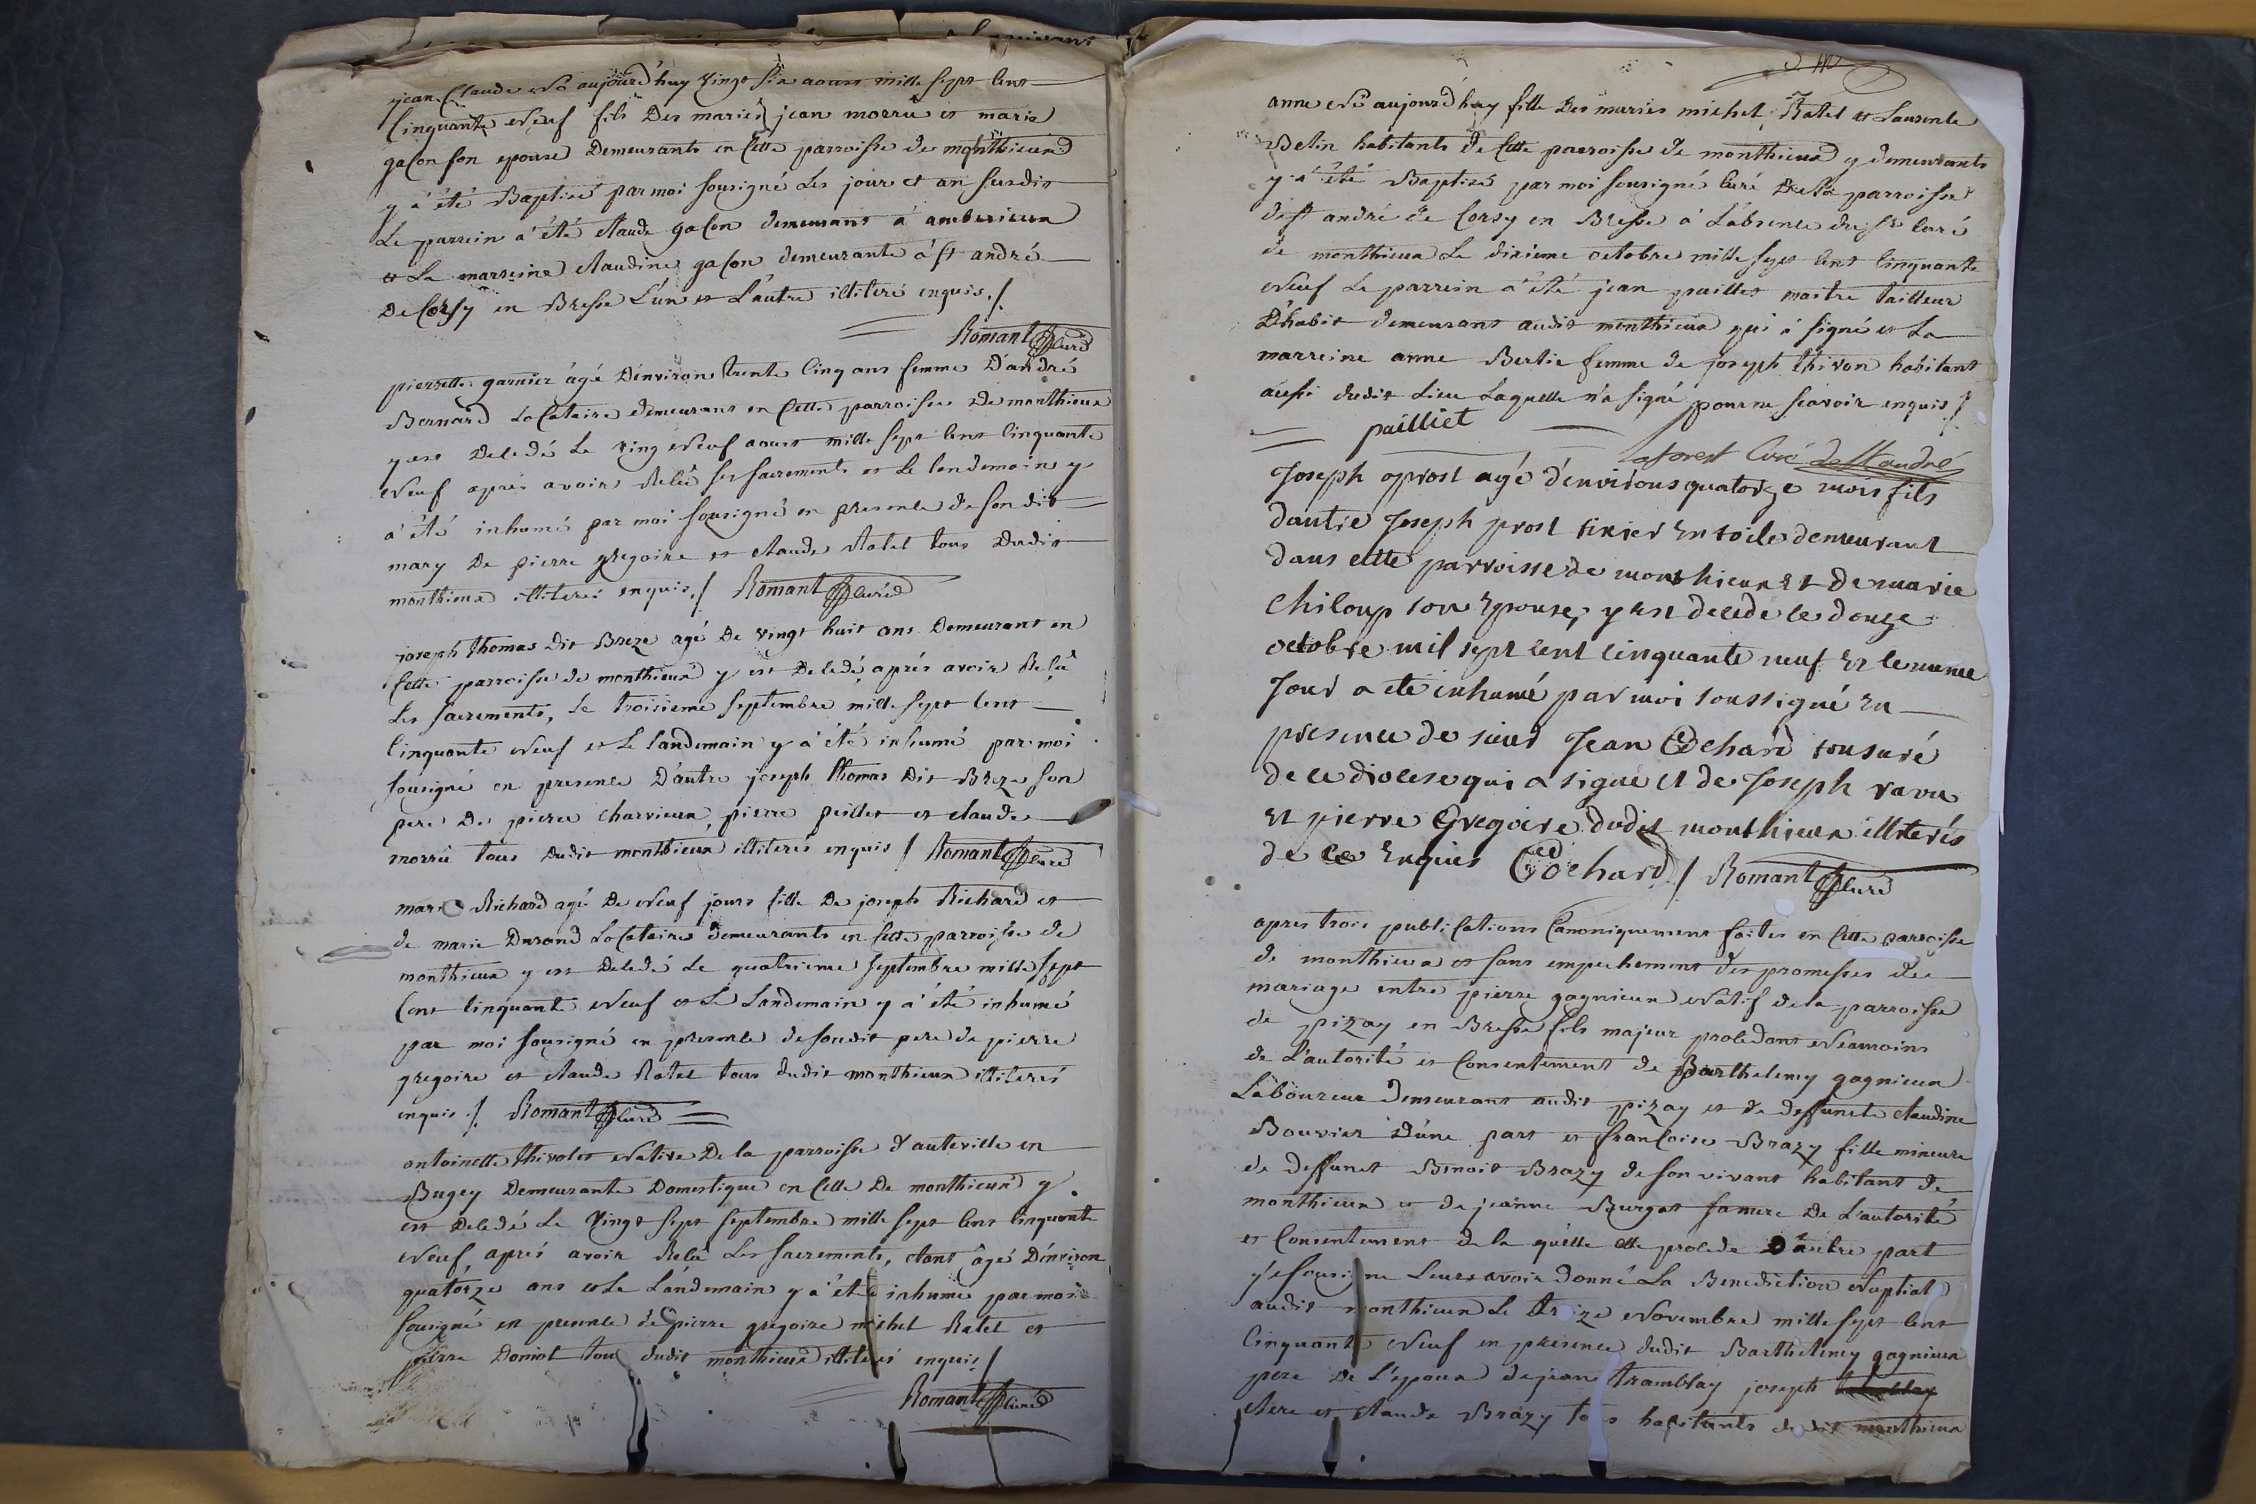 jean Claude né aujourd'huy vingt six aoust mille sept cent
cinquante neuf fils des mariés jean morru et marie
gacon son epouse demeurants en cette parroisse de monthieux
y a été Baptisé par moi sousigné les jour et an susdit
Le parrein a été claude gacon demeurant a amberieux
et La marreine claudine gacon demeurante á st andré
de Corsy en Bresse L'un et L'autre illiteré enquis ./.
Romant curé
pierrette garnier âgé d'environ trente cinq ans femme D'andré
Bernard Locataire demeurant en cette parroisse de monthieux
y est decedé Le ving neuf aoust mille sept cent cinquante
neuf aprés avoir Reçû ses sacrements et Le lendemain y
a été inhumé par moi sousigné en presence de son dit
mary de pierre gregoire et claude Ratel tous dudit
monthieux illiterés enquis ./ Romant curé
joseph thomas dit Breze agé de vingt huit ans Demeurant en
cette parroisse de monthieux y est decedé, aprés avoir Reçû
Les sacrements, Le troisieme septembre mille sept cent
cinquante neuf et Le landemain y a été inhumé par moi
sousigné en presence D'autre joseph thomas dit Breze son
pere De pierre charvieux, pierre peillet et claude
morru tous dudit monthieux illiterés enquis / Romant curé
marie Richard agé de neuf jours fille de joseph Richard et
de marie Durand Locataires demeurants en cette parroisse de
monthieux y est decedé Le quatrieme septembre mille sept
cent cinquante neuf et Le Landemain y a été inhumé
par moi sousigné en presence de sondit pere de pierre
gregoire et claude Ratel tous dudit monthieux illiterés
enquis ./. Romant curé
antoinette thivolet native De la parroisse d'auteville en
Bugey Demeurante Domestique en celle De monthieux y
est decedé Le vingt sept septembre mille sept cent cinquante
neuf, aprés avoir Reçû Les sacrements, etant âgé D'environ
quatorze ans et Le Landemain y a été inhumé par moi
sousigné en presence de pierre gregoire michel Ratel et
pierre Doniot tous dudit monthieux illiterés enquis /
Romant curé
anne né aujourd'huy fille des mariés michel Ratel et Laurence
Betin habitants de cette parroisse de monthieux y demeurants
y a été Baptisé par moi sousigné curé de la parroisse
de st andré de Corsy en Bresse á L'absence du sr curé
de monthieux Le dixieme octobre mille sept cent cinquante
neuf Le parrein a été jean paillet maitre tailleur
D'habit demeurant audit monthieux qui á signé et La
marreine anne Bertie femme de joseph thivon habitant
aussi dudit Lieu Laquelle n'a signé pour ne scavoir enquis ./.
pailliet
Laforest Curé de St andré
Joseph prost agé d'environs quatorze mois fils
d'autre Joseph prost tixier en toile demeurant
dans cette parroisse de monthieux et de marie
Chiloup son epouse, y est decedé le douze
octobre mil sept cent cinquante neuf et le meme
Jour a ete inhumé par moi soussigné en
presence de sieur Jean Cochard tonsuré
de ce diocese qui a signé et de Joseph ravu
et pierre Gregoire dudit monthieux illiterés
de ce enquis Cochard / Romant curé
apres trois publications Canoniquement faites en cette parroisse
de monthieux et sans empechement des promesses de
mariage entre pierre gagnieux natif de la parroisse
de pizay en Bresse fils majeur procedant neamoins
de L'autorité et Consentement de Barthelemy gagnieux
Laboureur Demeurant audit pizay et de deffuncte claudine
Bouvier D'une part et francoise Brazy fille mineure
de deffunct Benoit Brazy de son vivant habitant de
monthieux et de jeanne Burgat sa mere De L'autorité
et Consentement de la quelle elle procede D'autre part
je sousigne Leurs avoir donné La Benediction Nuptial
audit monthieux Le treize Novembre mille sept cent
cinquante neuf en presence dudit Barthelemy gagnieux
pere De L'epoux de jean Tramblay joseph
clere et claude Brazy tous habitants dudit monthieux